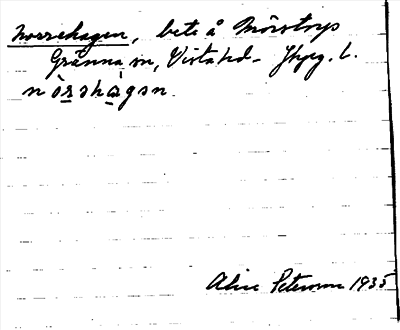 Norrehagen, bete å Mörstorp
Gränna sn, Vista hd. Jkpg. l.
nòrshàgən.
Alice Petersson 1935